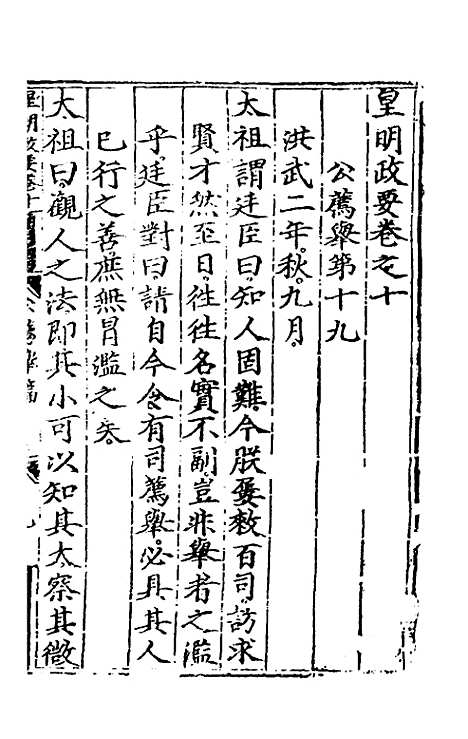 皇明政要卷之十
公薦舉第十九
洪武二年。秋。九月。
太祖謂廷臣曰。知人固難。今朕屡敕百司。訪求
賢才。然至日。徃徃名實不副。豈非舉者之濫
乎。廷臣對曰。請自今令有司薦舉。必具其人
已行之善。庶無冒濫之失。
太祖曰。觀人之法。即其小可以知其大。察其微
皇明政要卷十